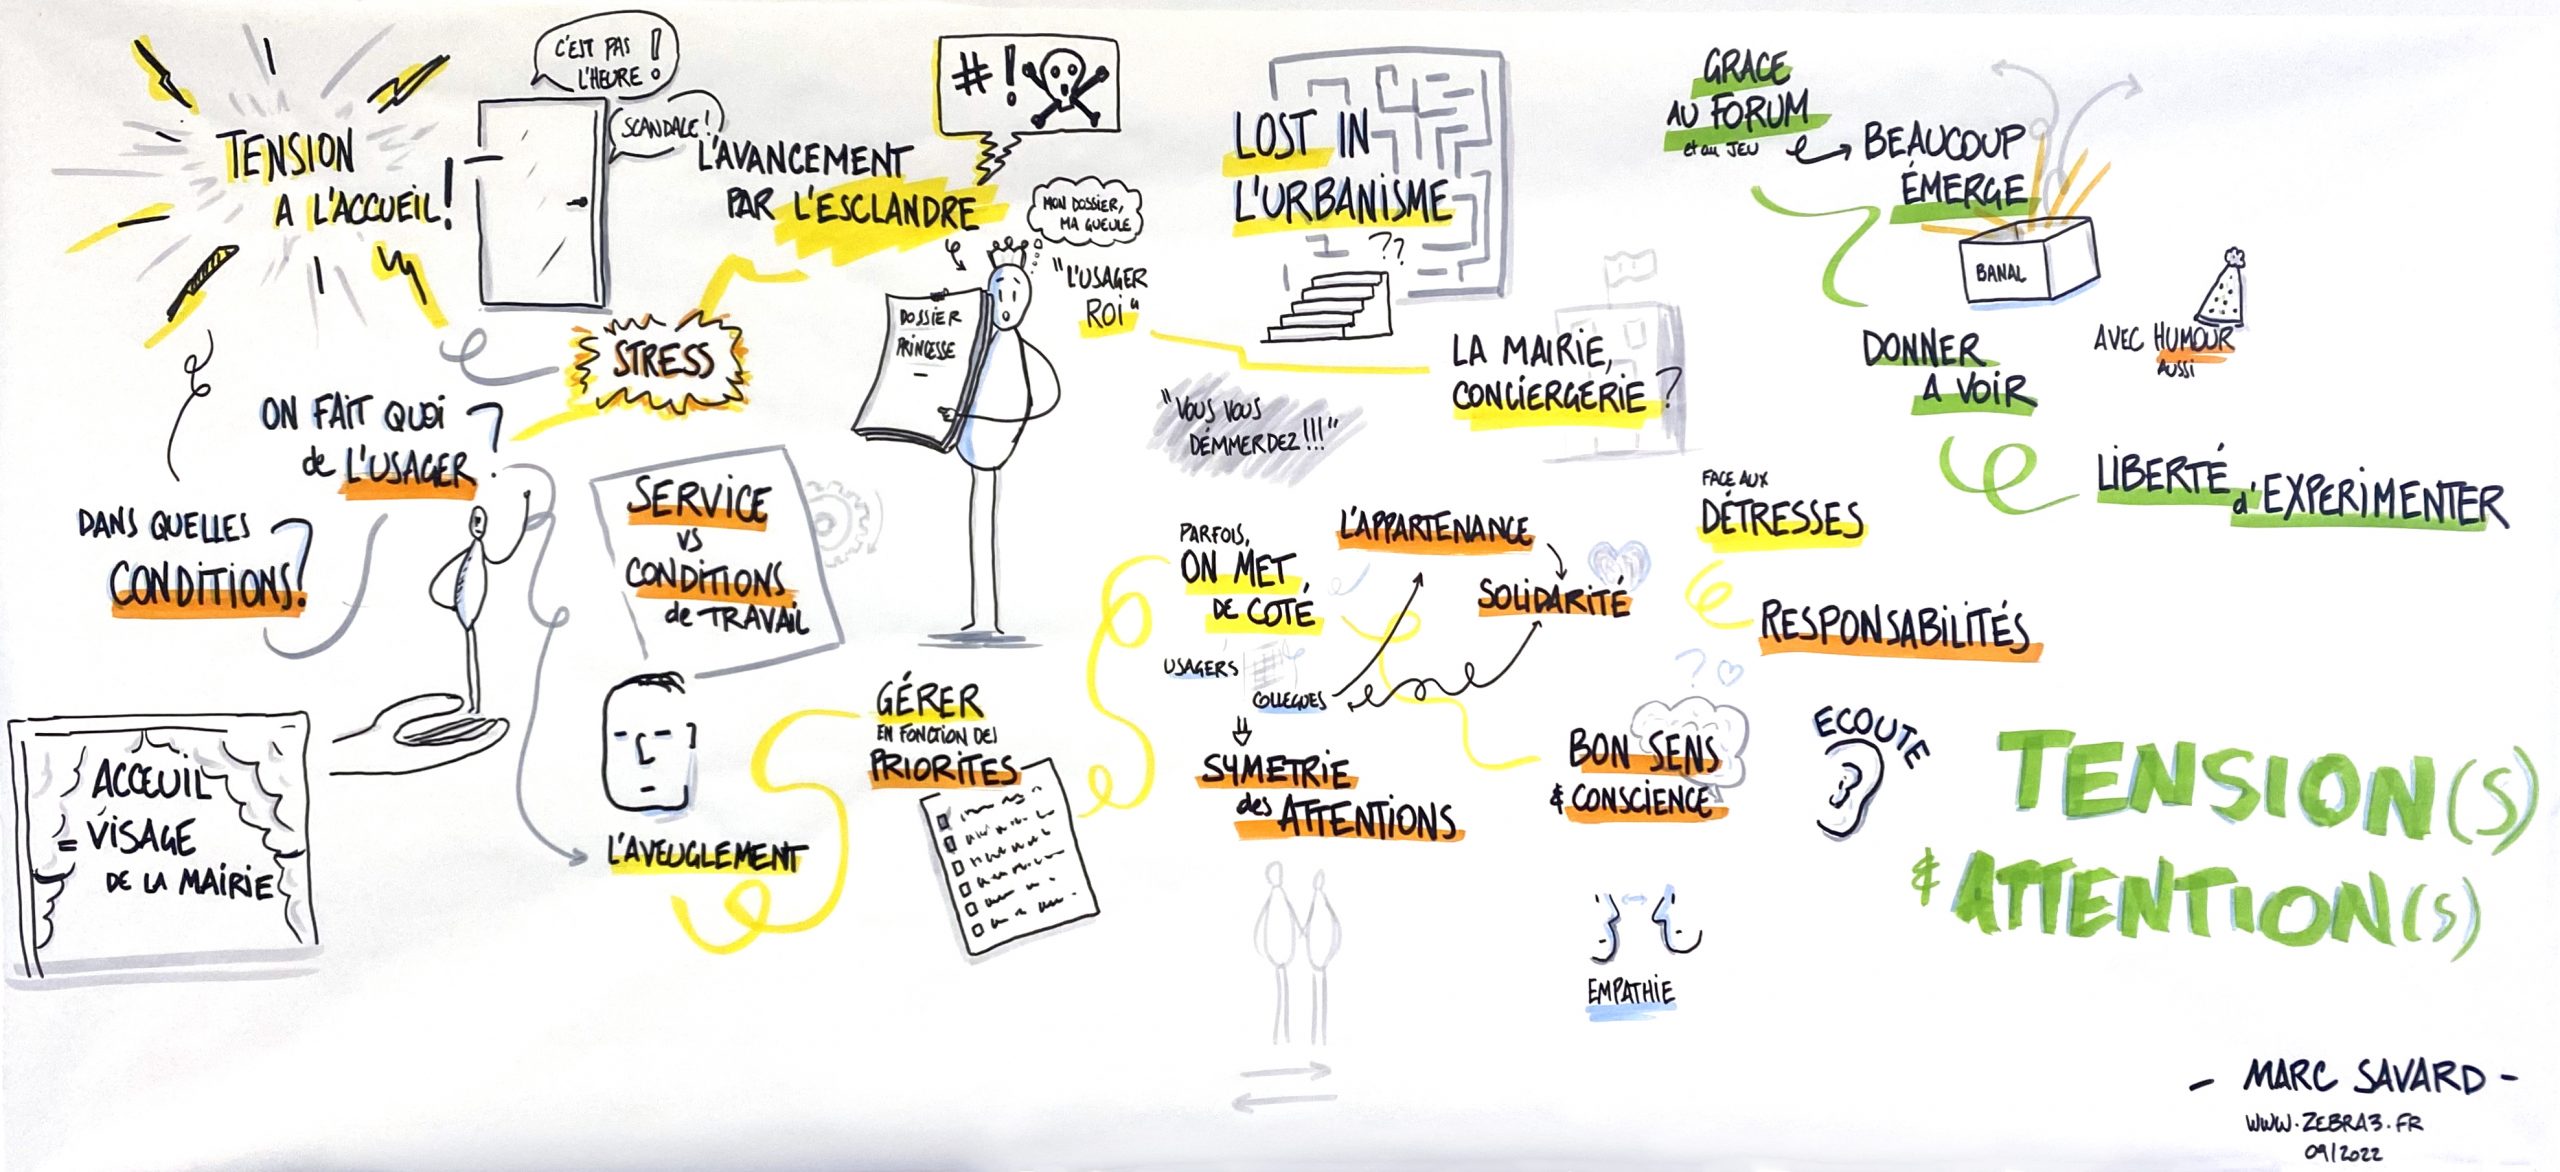 TENSION
A L'ACCUEIL!
C'EST PAS
L'HEURE!
SCANDALE!
L'AVANCEMENT
PAR L'ESCLANDRE
#!
MON DOSSIER,
MA GUEULE
"L'USAGER
ROI"
DOSSIER
PRINCESSE
STRESS
ON FAIT QUOI
de L'USAGER?
DANS QUELLES
CONDITIONS?
ACCEUIL
= VISAGE
DE LA MAIRIE
SERVICE
VS
CONDITIONS
de TRAVAIL
L'AVEUGLEMENT
GÉRER
EN FONCTION DES
PRIORITES
LOST IN
L'URBANISME
??
"VOUS VOUS
DÉMMERDEZ!!!"
LA MAIRIE,
CONCIERGERIE?
PARFOIS,
ON MET
DE COTÉ
USAGERS
COLLEGUES
L'APPARTENANCE
SOLIDARITÉ
SYMETRIE
des ATTENTIONS
FACE AUX
DÉTRESSES
RESPONSABILITÉS
?
BON SENS
& CONSCIENCE
ECOUTE
EMPATHIE
GRACE
AU FORUM
et au JEU
BEAUCOUP
ÉMERGE
BANAL
DONNER
A VOIR
AVEC HUMOUR
AUSSI
LIBERTÉ
d'EXPERIMENTER
TENSION(S)
& ATTENTION(S)
- MARC SAVARD -
WWW.ZEBRA3.FR
09/2022